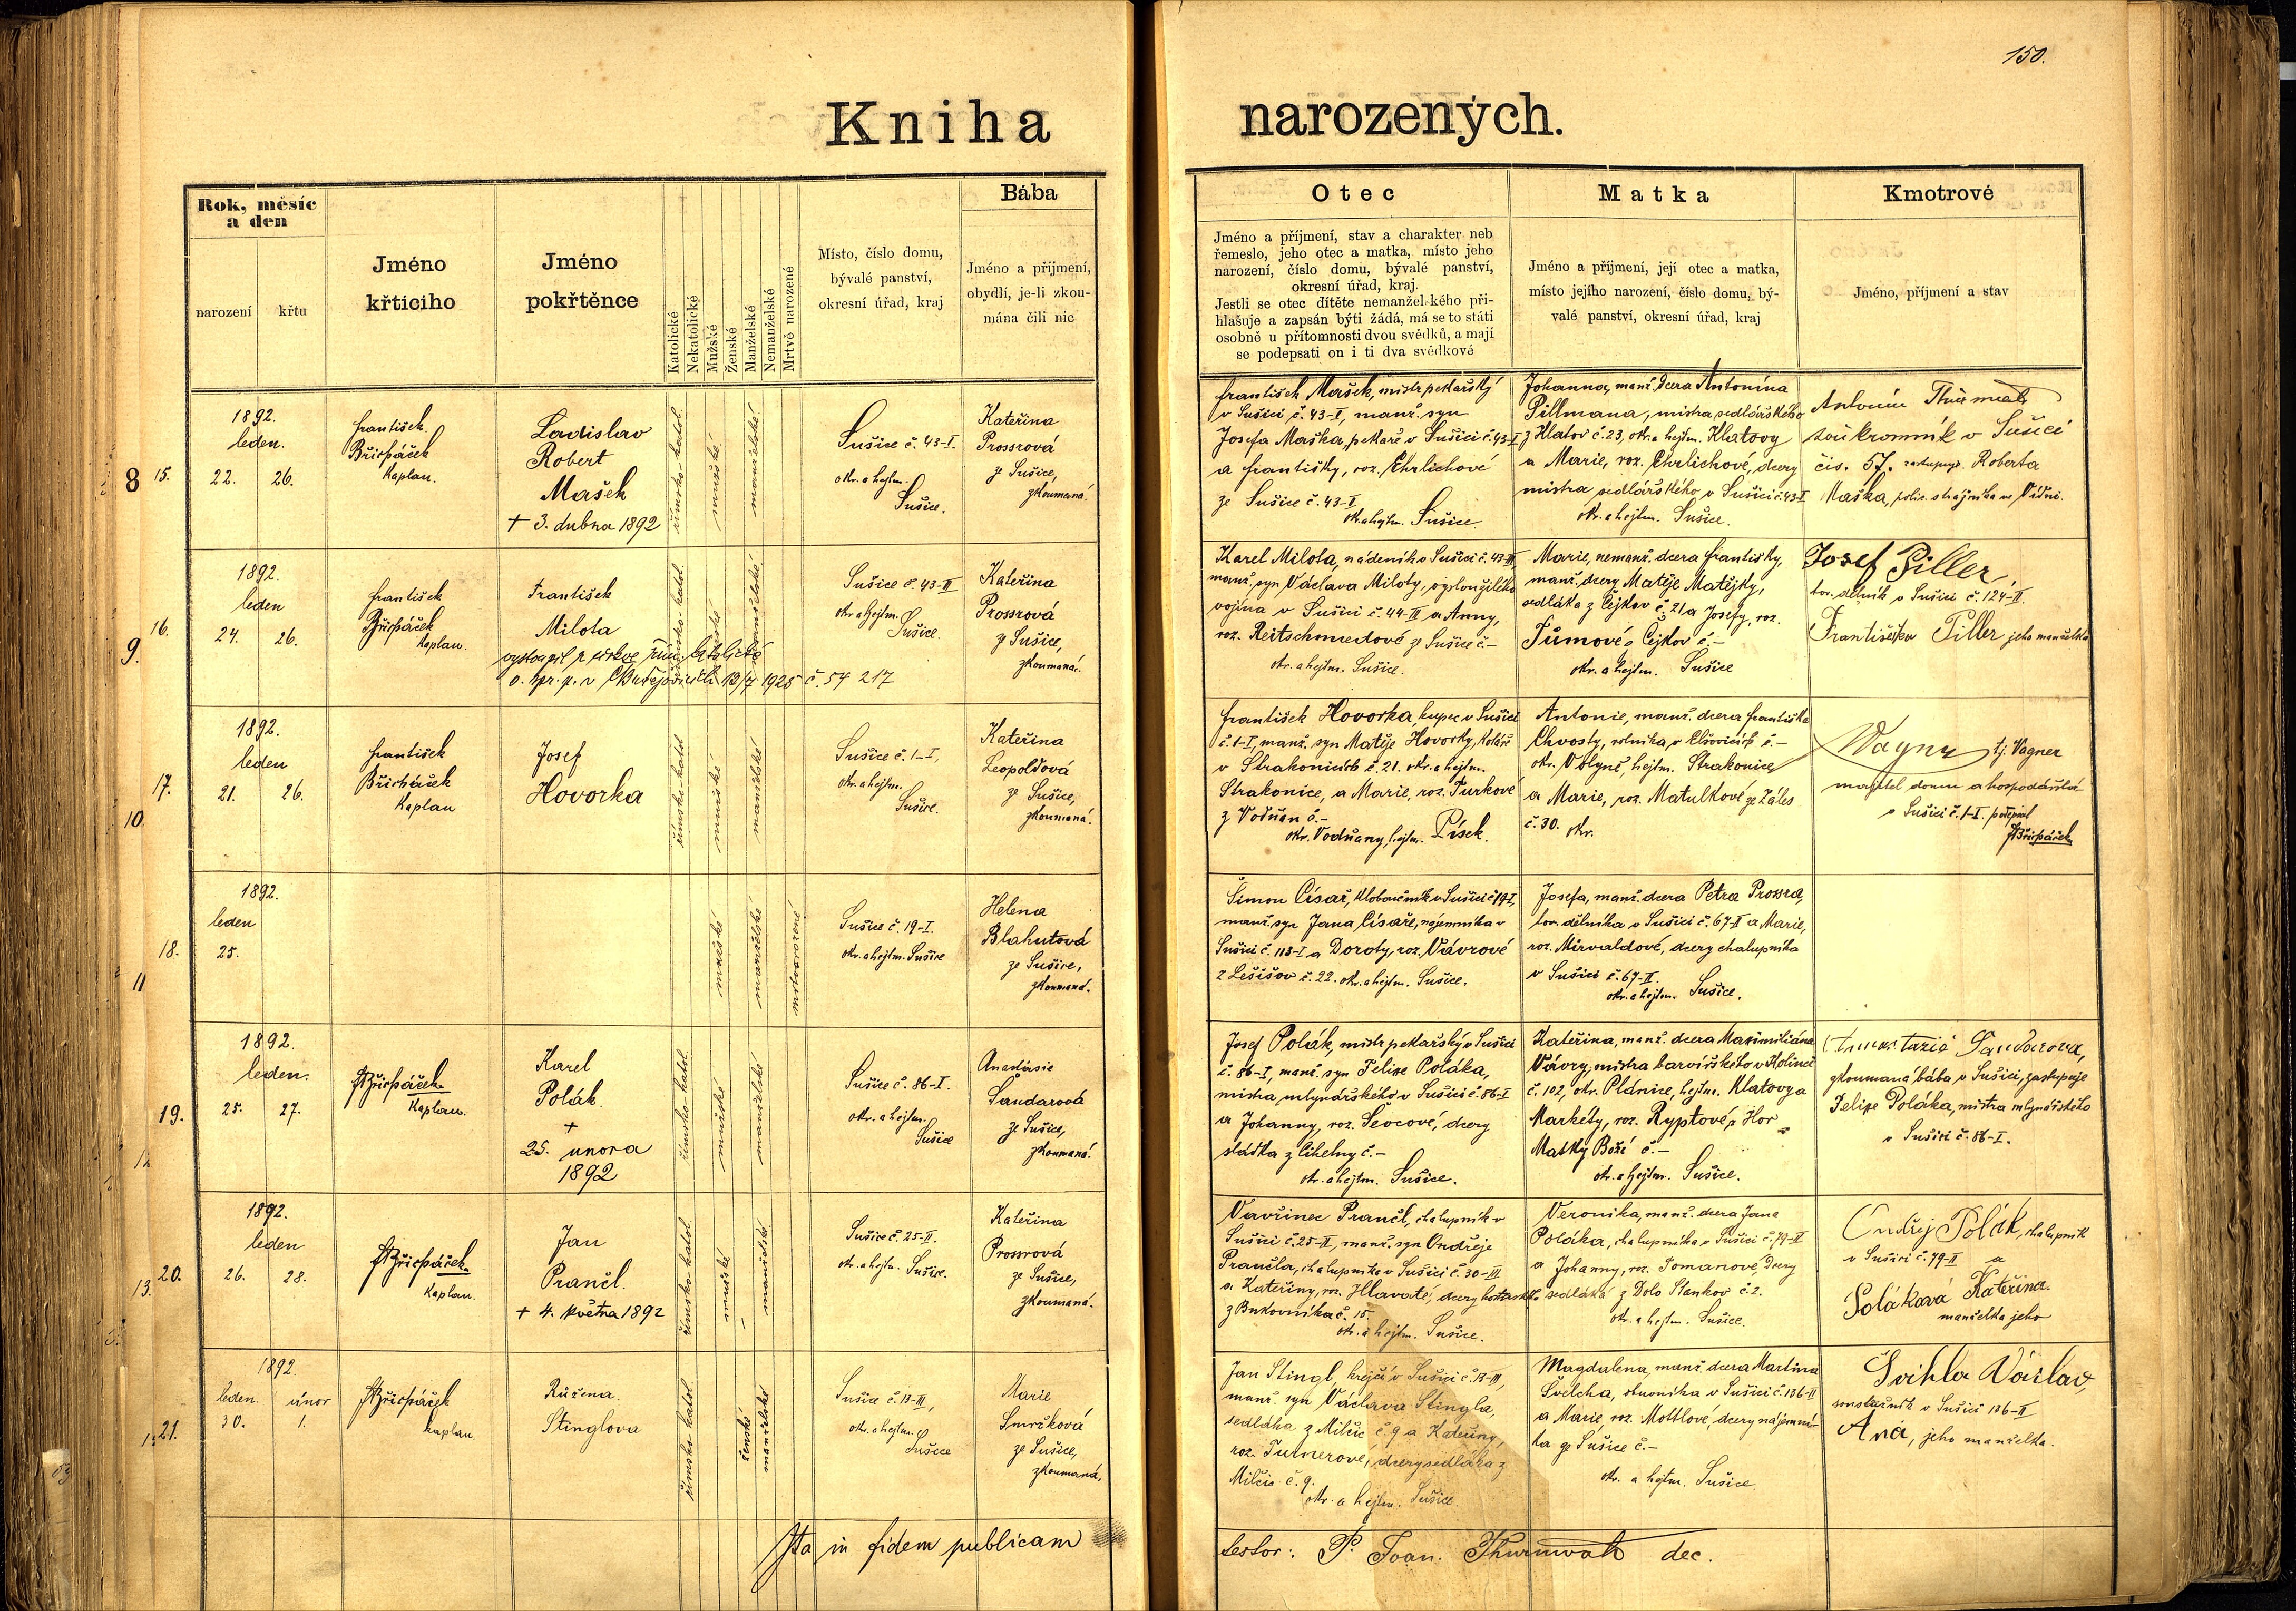 150.
Kniha
narozených.
Rok, měsíc
a den
narození
křtu
Jméno
křticího
Jméno
pokřtěnce
Katolické
Nekatolické
Mužské
Ženské
Manželské
Nemanželské
Mrtvě narozené
Místo, číslo domu,
bývalé panství,
okresní úřad, kraj
Bába
Jméno a příjmení,
obydlí, je-li zkou-
mána čili nic
Otec
Jméno a příjmení, stav a charakter neb
řemeslo, jeho otec a matka, místo jeho
narození, číslo domu, bývalé panství,
okresní úřad, kraj.
Jestli se otec dítěte nemanželského při-
hlašuje a zapsán býti žádá, má se to státi
osobně u přítomnosti dvou svědků, a mají
se podepsati on i ti dva svědkové
Matka
Jméno a příjmení, její otec a matka,
místo jejího narození, číslo domu, bý-
valé panství, okresní úřad, kraj
Kmotrové
Jméno, příjmení a stav
8
15.
1892.
leden.
22.
26.
František
Břicháček
Kaplan.
Ladislav
Robert
Mašek
+ 3. dubna 1892
římsko-katol.
mužské
manželské
Sušice č. 43-I.
okr. a hejtm.
Sušice.
Kateřina
Prossrová
ze Sušice,
zkoumaná.
František Mašek, mistr pekařský
v Sušici č. 43-I, manž. syn
Josefa Maška, pekaře v Sušici č. 43-I
a Františky, roz. Ehrlichové
ze Sušice č. 43-I
okr. a hejtm. Sušice.
Johanna, manž. dcera Antonína
Pillmana, mistra sedlářského
z Klatov č. 23, okr. a hejtm. Klatovy
a Marie, roz. Ehrlichové, dcery
mistra sedlářského v Sušici č. 43-I
okr. a hejtm. Sušice.
Antonín
soukromník v Sušici
čís. 57. zastupuje Roberta
Maška, polic. strážníka ve Vídni.
9.
16.
1892.
leden
24.
26.
František
Břicháček
Kaplan.
František
Milota
vystoupil z církve řím. katolické
13/7 1925 č. 54 217
římsko-katol.
mužské
manželské
Sušice č. 43-II
okr. a hejtm.
Sušice.
Kateřina
Prossrová
z Sušice,
zkoumaná.
Karel Milota, nádeník v Sušici č. 43-II,
manž. syn Václava Miloty, vysloužilého
vojína v Sušici č. 44-II a Anny,
roz. Reitschmiedové ze Sušice č. –
okr. a hejtm. Sušice.
Marie, nemanž. dcera Františky,
manž. dcery Matěje Matějky,
sedláka z Čejkov č. 21 a Josefy, roz.
Tůmové z Čejkov č. –
okr. a hejtm. Sušice
Josef Piller,
tov. dělník v Sušici č. 124-II.
Františka Piller jeho manželka
10
17.
1892.
leden
21.
26.
František
Břicháček
Kaplan
Josef
Hovorka
římsko-katol.
mužské
manželské
Sušice č. 1-I,
okr. a hejtm.
Sušice.
Kateřina
Leopoldová
ze Sušice,
zkoumaná.
František Hovorka, kupec v Sušici
č. 1-I, manž. syn Matěje Hovorky, koláře
v Strakonicích č. 21. okr. a hejtm.
Strakonice, a Marie, roz. Turkové
z Vodňan č. –
okr. Vodňany, hejtm. Písek.
Antonie, manž. dcera Františka
Chvosty, rolníka, v Elčovicích č. –
okr. Volyně, hejtm. Strakonice
a Marie, roz. Matulkové ze Záles
č. 30. okr.
Wagner tj. Vagner
majitel domu a hospodářství
v Sušici č. 1-I.
Břicháček
11
18.
1892.
leden
25.
mužské
manželské
mrtvorozené
Sušice č. 19-I.
okr. a hejtm. Sušice
Helena
Blahutová
ze Sušice,
zkoumaná.
Šimon Císař, kloboučník v Sušici č. 19-I,
manž. syn Jana Císaře, nájemníka v
Sušici č. 113-I a Doroty, roz. Vávrové
z Lešišov č. 22. okr. a hejtm. Sušice.
Josefa, manž. dcera Petra Prossra,
tov. dělníka v Sušici č. 67-II a Marie,
roz. Mirvaldové, dcery chalupníka
v Sušici č. 67-II.
okr. a hejtm. Sušice.
12
19.
1892.
leden.
25.
27.
Břicháček
Kaplan.
Karel
Polák.
+
25. února
1892
římsko-katol.
mužské
manželské
Sušice č. 86-I.
okr. a hejtm.
Sušice
Anastásie
Šandarová
ze Sušice,
zkoumaná.
Josef Polák, mistr pekařský v Sušici
č. 86-I, manž. syn Felixe Poláka,
mistra mlynářského v Sušici č. 86-I
a Johanny, roz. Ševcové, dcery
sládka z Cihelny č. –
okr. a hejtm. Sušice.
Kateřina, manž. dcera Maximiliána
Vávry, mistra barvířského v Kolinci
č. 102, okr. Plánice, hejtm. Klatovy a
Markéty, roz. Ryptové, z Hor
Matky Boží č. –
okr. a hejtm. Sušice.
Anastazie Šandarova,
zkoumaná bába v Sušici, zastupuje
Felixe Poláka, mistra mlynářského
v Sušici č. 86-I.
13.
20.
1892.
leden
26.
28.
Břicháček
Kaplan.
Jan
Prančl.
+ 4. května 1892
římsko-katol.
mužské
manželské
Sušice č. 25-II.
okr. a hejtm. Sušice.
Kateřina
Prossrová
ze Sušice,
zkoumaná.
Vavřinec Prančl, chalupník v
Sušici č. 25-II, manž. syn Ondřeje
Prančla, chalupníka v Sušici č. 30-III
a Kateřiny, roz. Hlavaté, dcery
z Bukovníka č. 15.
okr. a hejtm. Sušice.
Veronika, manž. dcera Jana
Poláka, chalupníka v Sušici č. 79-II
a Johanny, roz. Tomanové, dcery
sedláka z Dolo Stankov č. 2.
okr. a hejtm. Sušice.
Ondřej Polák, chalupník
v Sušici č. 79-II a
Poláková Kateřina
manželka jeho
21.
1892.
leden
únor
30.
1.
Břicháček
kaplan.
Růžena
Stinglova
římsko-katol.
ženské
manželské
Sušice č. 13-III,
okr. a hejtm.
Sušice
Marie
Smržková
ze Sušice,
zkoumaná.
Jan Stingl, krejčí v Sušici č. 13-III,
manž. syn Václava Stingla,
sedláka z Milčic č. 9 a Kateřiny,
roz. Turnerové, dcery sedláka z
Milčic č. 9.
okr. a hejtm. Sušice.
Magdalena, manž. dcera Martina
Švelcha, obuvníka v Sušici č. 136-II
a Marie, roz. Mottlové, dcery nájemní-
ka ze Sušice č. –
okr. a hejtm. Sušice.
Švihla Václav,
v Sušici 136-II
Aná, jeho manželka.
Ita in fidem publicam
testor: P. Joan. Thurnwald dec.